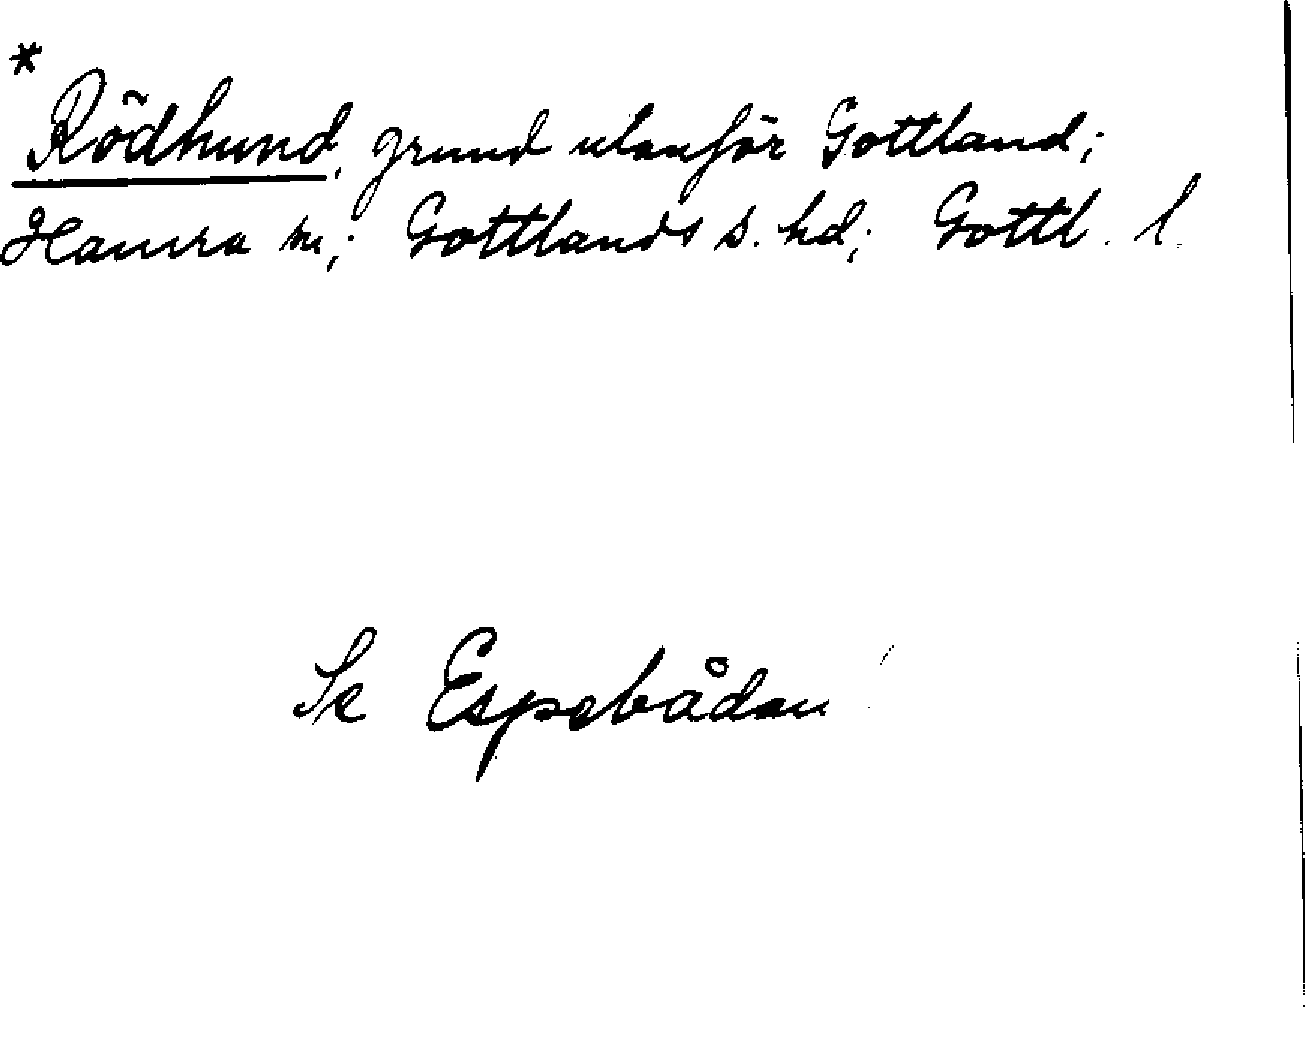 *
Rödhund, grund utanför Gottland;
Hamra sn; Gottlands s. hd; Gottl. l.
Se Espebådan